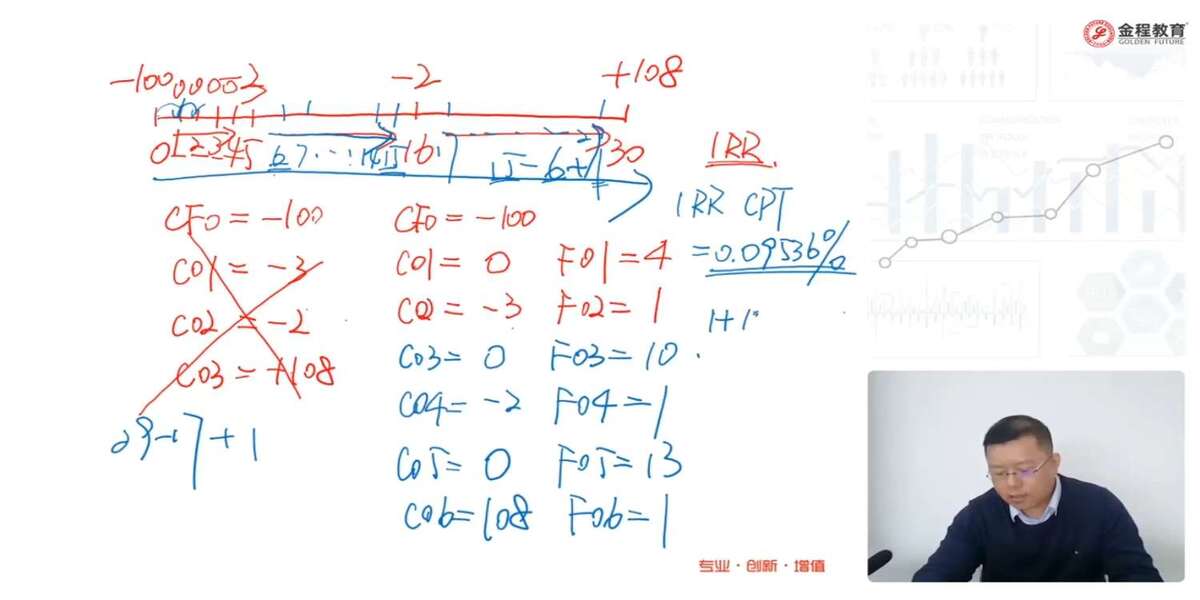 金程教育
GOLDEN FUTURE
-100 0 0 0 0 -3 -2 +108
0 1 2 3 4 5 6 7 ... 14 15 16 17 29 30
15-6+1
IRR
IRR CPT
=0.09536%
1+1
CF0=-100
C01=-3
C02=-2
C03=+108
29-17+1
CF0=-100
C01=0 F01=4
C02=-3 F02=1
C03=0 F03=10
C04=-2 F04=1
C05=0 F05=13
C06=108 F06=1
专业·创新·增值